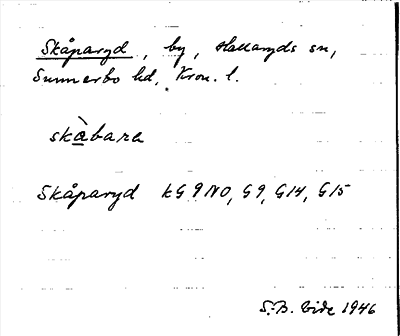 Skåparyd, by, Hallaryds sn,
Sunnerbo hd, Kron. l.
skàbara
Skåparyd kG 9 NO, G9, G14, G15
S.-B. Vide 1946